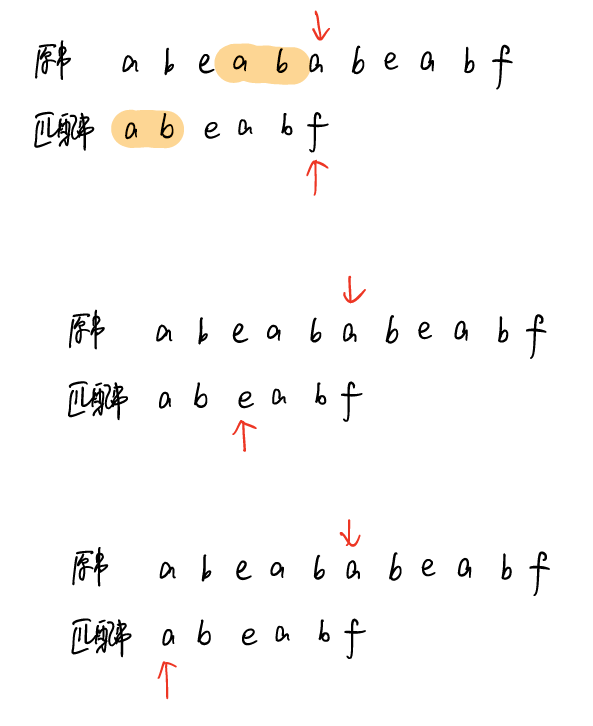 原串 a b e a b a b e a b f
匹配串 a b e a b f
原串 a b e a b a b e a b f
匹配串 a b e a b f
原串 a b e a b a b e a b f
匹配串 a b e a b f